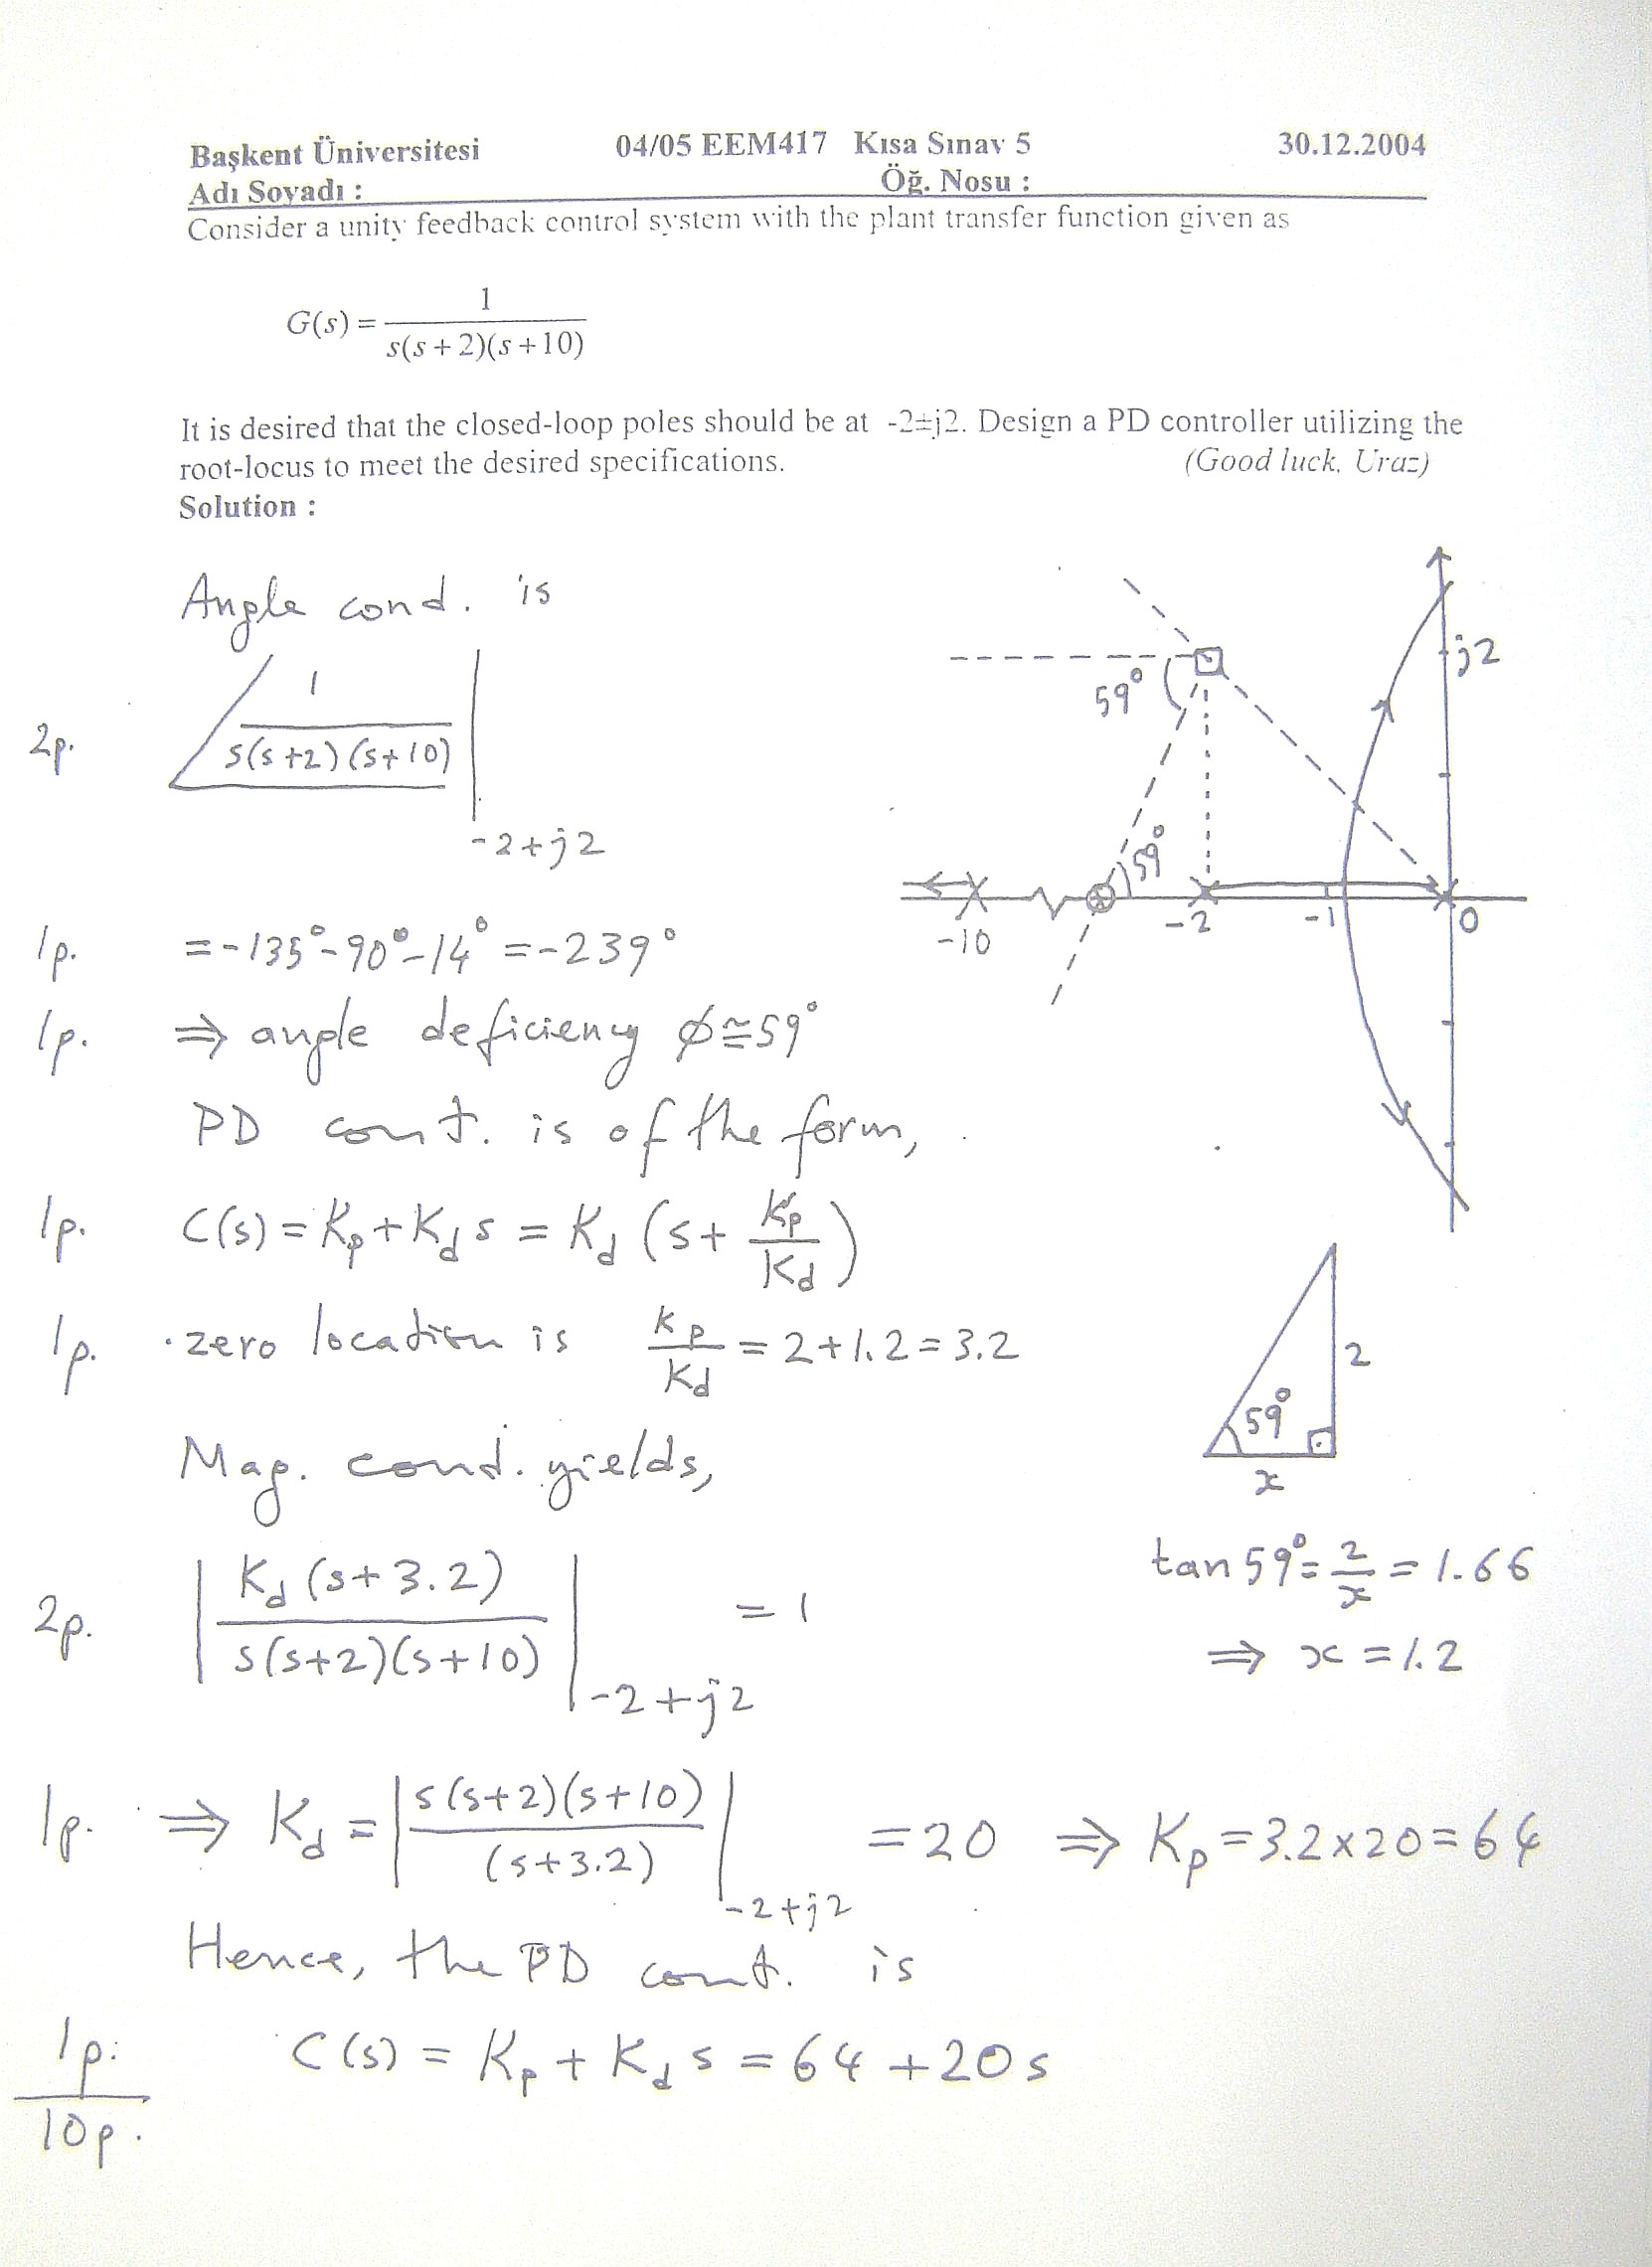 Başkent Üniversitesi 04/05 EEM417 Kısa Sınav 5 30.12.2004
Adı Soyadı : Öğ. Nosu :
Consider a unity feedback control system with the plant transfer function given as
G(s) = 1 / s(s+2)(s+10)
It is desired that the closed-loop poles should be at -2±j2. Design a PD controller utilizing the
root-locus to meet the desired specifications. (Good luck, Uraz)
Solution :
Angle cond. is
2p. 1 / s(s+2)(s+10) | -2+j2
1p. = -135° - 90° - 14° = -239°
1p. ⇒ angle deficiency ϕ ≅ 59°
PD cont. is of the form,
1p. C(s) = Kp + Kd s = Kd (s + Kp/Kd)
1p. zero location is Kp/Kd = 2+1.2 = 3.2
Mag. cond. yields,
2p. | Kd (s+3.2) / s(s+2)(s+10) | -2+j2 = 1
1p. ⇒ Kd = | s(s+2)(s+10) / (s+3.2) | -2+j2 = 20 ⇒ Kp = 3.2x20 = 64
Hence, the PD cont. is
1p. C(s) = Kp + Kd s = 64 + 20s
10p.
j2
59°
59°
-10 -2 -1 0
2
59°
x
tan 59° = 2/x = 1.66
⇒ x = 1.2